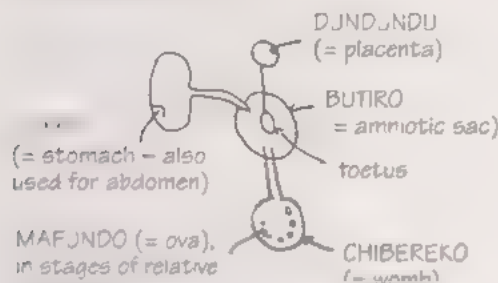 DUNDUNDU
(= placenta)
BUTIRO
= amniotic sac)
(= stomach – also
used for abdomen)
foetus
MAFUNDO (= ova),
in stages of relative
CHIBEREKO
(= womb)